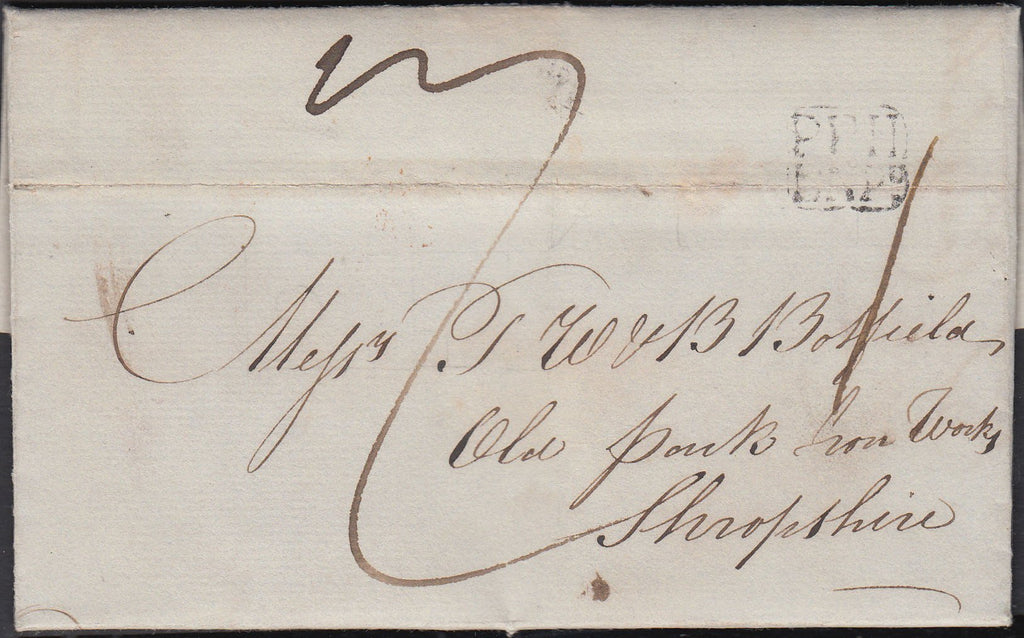 Messrs T W & B Botfield
Old park Iron Works
Shropshire